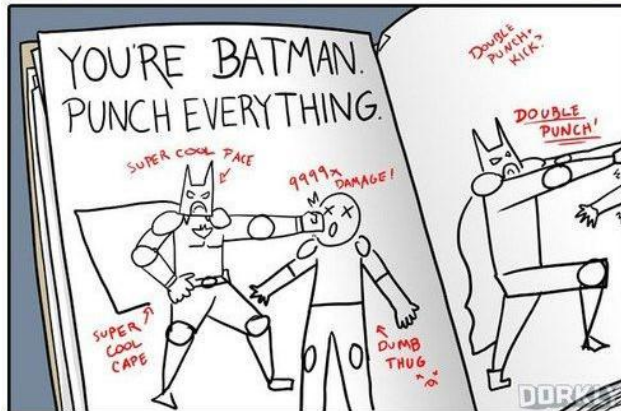 YOU'RE BATMAN.
PUNCH EVERYTHING.
SUPER COOL FACE
9999x
DAMAGE!
SUPER
COOL
CAPE
DUMB
THUG
DOUBLE
PUNCH+
KICK?
DOUBLE
PUNCH!
DORKLY